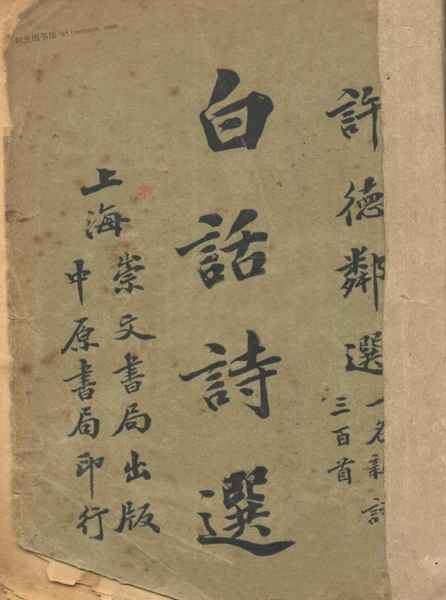 許德鄰選
一名新詩
三百首
白話詩選
上海崇文書局出版
中原書局印行